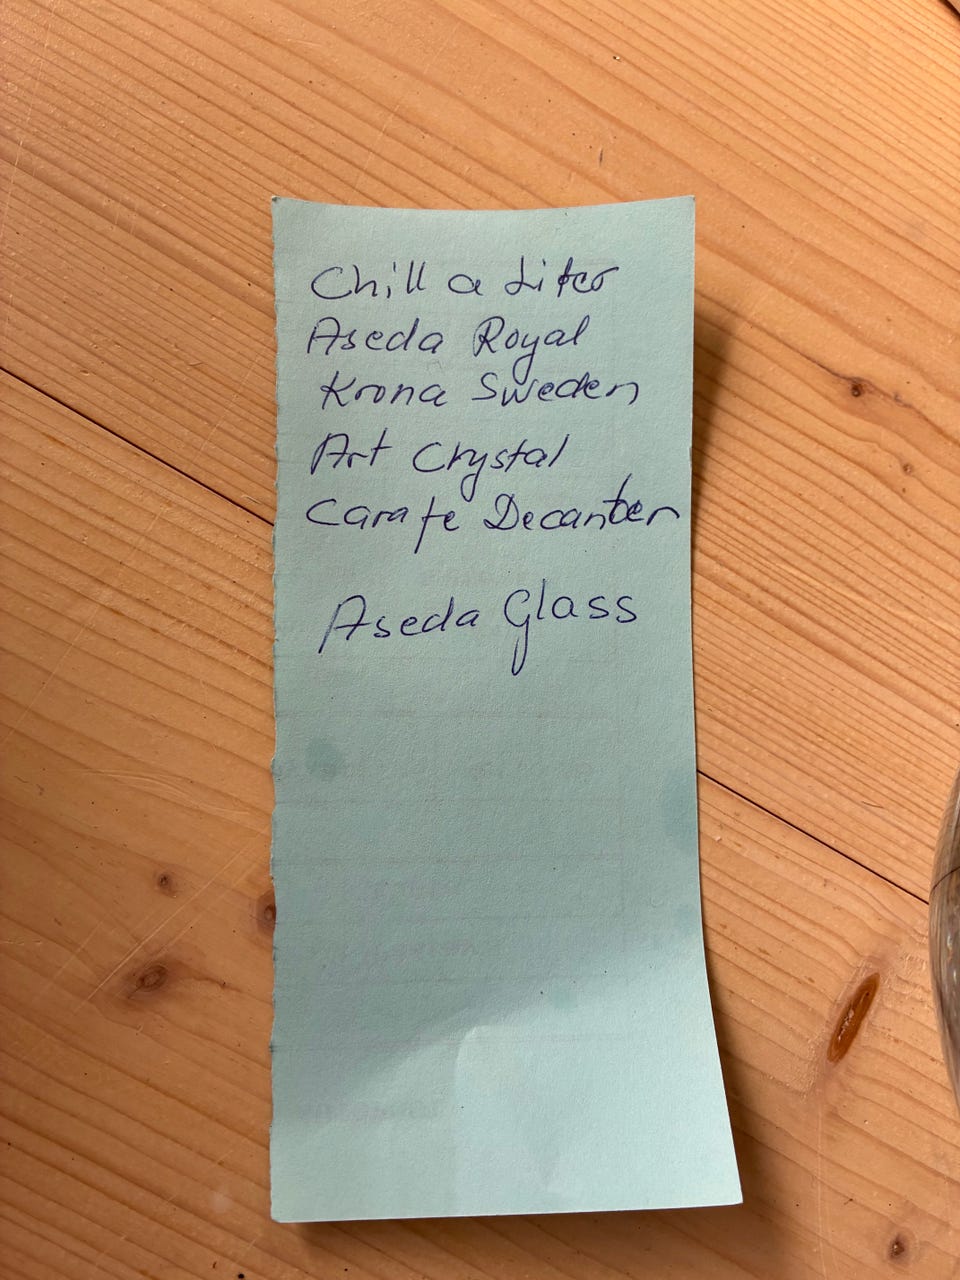 Chill a Liter
Aseda Royal
Krona Sweden
Art Crystal
Carafe Decanter
Aseda Glass